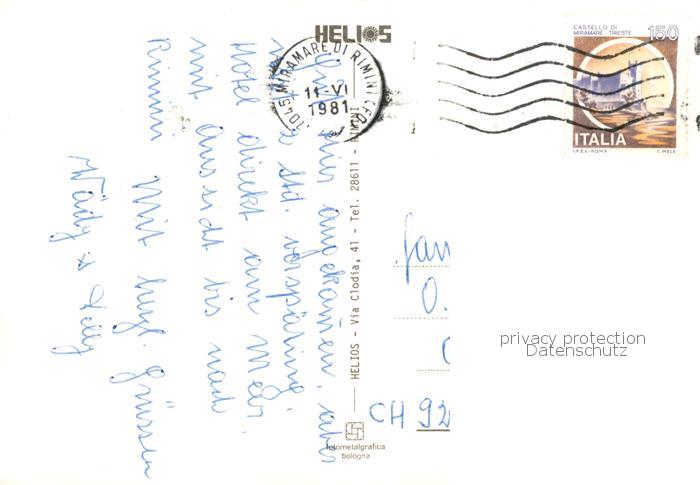 HELIOS
CASTELLO DI
MIRAMARE TRIESTE
150
ITALIA
I.P.Z.S.-ROMA
E. MELE
MIRAMARE DI RIMINI
11-VI
1981
Gut hier angekom̄en, aber
mit 2 Std. Verspätung.
Hotel direkt am Meer
mit Aussicht bis nach
Rimini
Mit herzl. Grüssen
Wädy & Kelly
HELIOS - Via Clodia, 41 - Tel. 28611 - RIMINI
Fam
O.
CH 92
fotometalgrafica
bologna
privacy protection
Datenschutz